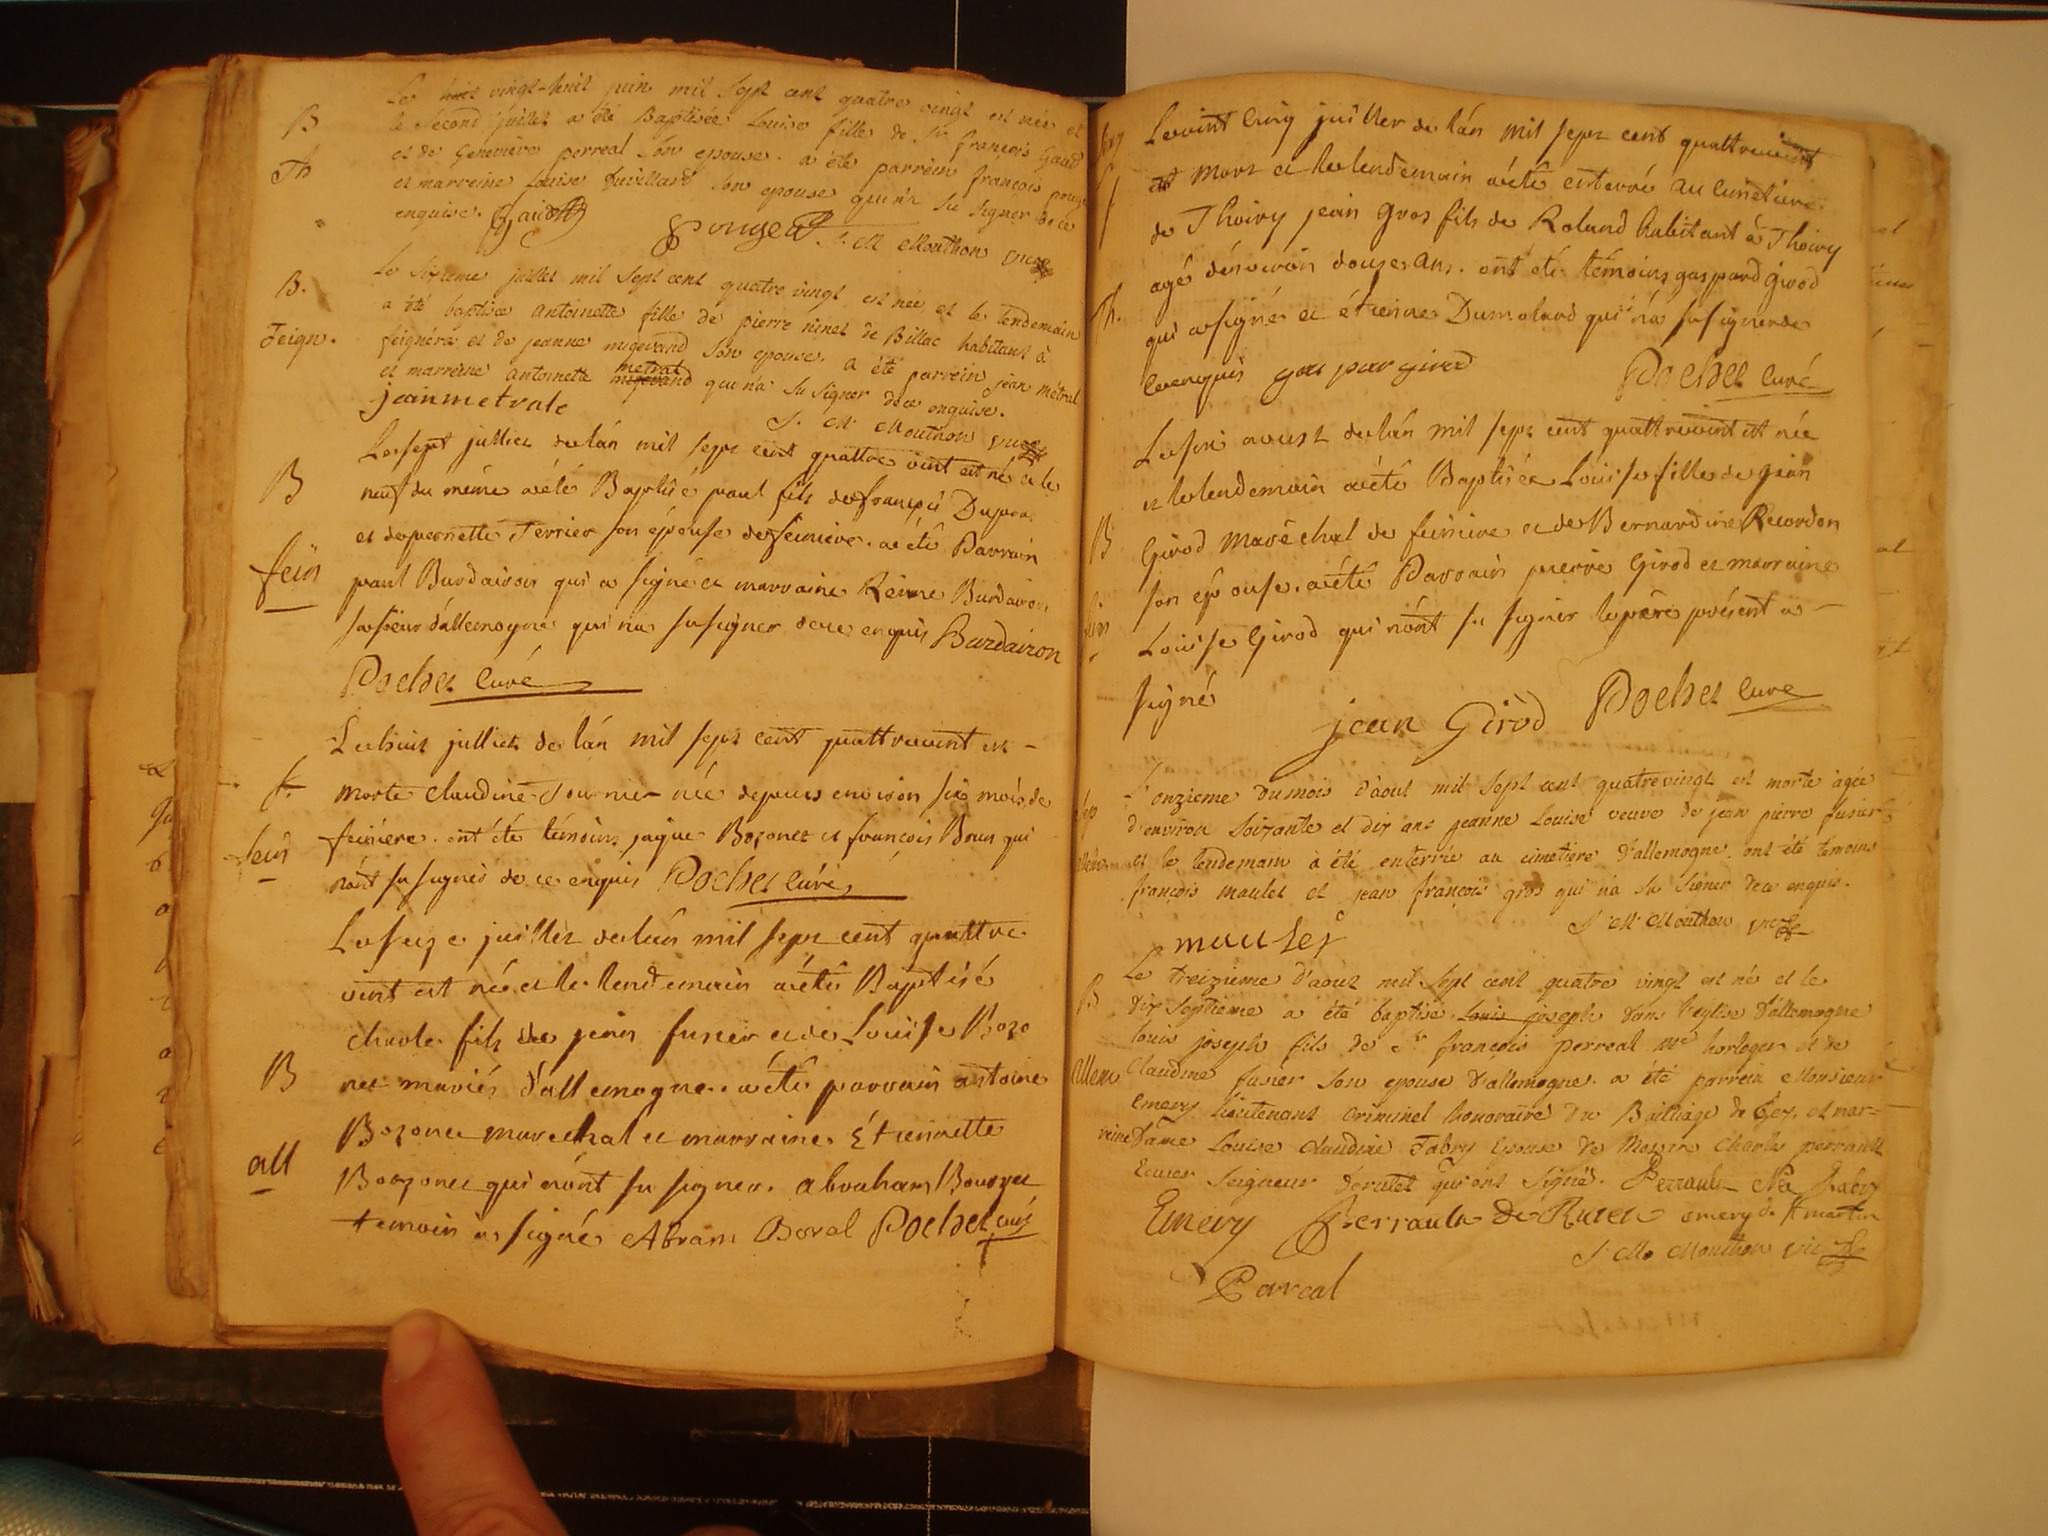 Le huit vingt-huit juin mil sept cent quatre vingt est née et
B
le second juillet a été Baptisée Louise fille de Sr françois Gaud
et de Genevieve perreal son epouse. a été parrein françois
Th
et marreine Louise duvillard son epouse qui n'a su signer de ce
enquise. Gaud
Pouget J. M Mouthon vice
Le sixieme juillet mil sept cent quatre vingt est née et le lendemain
B.
a été baptisée antoinette fille de pierre ninet de Billac habitant à
feignera et de jeanne migevand son epouse. a été parrein jean métral
feign.
et marreine antoinette migevand metral qui n'a su signer de ce enquise.
jean metrale
J. M. Mouthon vice
Le sept julliet de lán mil sept cent quattre vint est né et le
B
neuf du même aété Baptisé paul fils de françois Dupra
et de pernette Terrier son épouse de feiniere. aété Parrain
fein
paul Burdairon qui a signé et marraine Reine Burdairon
sa sœur d'allemogne qui na su signer de ce enquis Burdairon
Pochet Curé
Le huit julliet de lán mil sept cent quattrevint est
f.
morte claudine Tournier née depuis environ six mois de
fein
feiniere. ont été témoins jaque Bozonet et françois Brun qui
nónt su signés de ce enquis Pochet curé
Le seize juillet de lán mil sept cent quattre
vint est né et le lendemain aété Baptisé
charle fils de jean fusier et de Louise Bozo
B
net mariés d'allemogne. aété parrain antoine
Bozonet marechal et marraine Étiennette
all
Bozonet qui nónt su signer. abraham Bovoyet
temoin a signé Abram Borel Pochet curé
Le vint cinq juillet de lán mil sept cent quattrevint
est mort et le lendemain aété enterré au cimetiere
f
de Thoiry jean Gros fils de Roland habitant à Thoiry
agé dénviron douse ans. ont été témoins gaspard girod
Th.
qui a signé et étienne Dumolard qui n'a su signer de
ce enquis gaspar girod
Pochet Curé
Le six aoust de lán mil sept cent quattrevint est née
et le lendemain aété Baptisée Louise fille de jean
B
Girod maréchal de feiniere et de Bernardine Recordon
son épouse. aété Parrain pierre Girod et marraine
fein
Louise Girod qui nónt su signer le pere présent a
signé
jean Girod Pochet Curé
L'onzieme du mois d'aout mil sept cent quatrevingt est morte agée
d'environ soixante et dix ans jeanne Louise veuve de jean pierre fusier
et le lendemain à été enterrée au cimetiere d'allemogne. ont été temoins
françois maulet et jean françois gros qui n'a su signer de ce enquis.
J. M Mouthon vice
maulet
Le treizieme d'aout mil sept cent quatre vingt est né et le
B
dix septieme a été baptisé Louis joseph dans l'eglise d'allemogne
louis joseph fils de Sr françois perreal me horloger et de
allem
Claudine fusier son epouse d'allemogne. a été parrein Monsieur
Emery lieutenant criminel honoraire du Bailliage de Gex, et mar=
reine Dame Louise Claudine Fabry Epouse de Messire Charle perrault
Ecuier Seigneur de rutet qui ont signé. Perrault Née Fabry
Emery Perrault De Rutet emery de st martin
J. M. Mouthon vice
Perreal